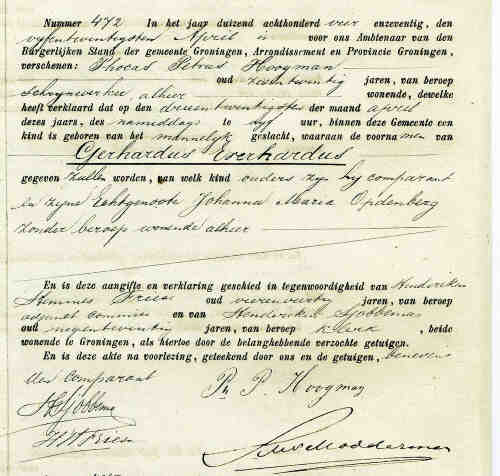 Nummer 472 In het jaar duizend achthonderd vier enzeventig, den
vyfentwintigsten April is voor ons Ambtenaar van den
Burgerlijken Stand der gemeente Groningen, Arrondissement en Provincie Groningen,
verschenen: Phocas Petrus Hoogman
oud zesentwintig jaren, van beroep
schrynwerker alhier wonende, dewelke
heeft verklaard dat op den drieentwintigsten der maand april
dezes jaars, des namiddags te vyf uur, binnen deze Gemeente een
kind is geboren van het mannelyk geslacht, waaraan de voornamen van
Gerhardus Everhardus
gegeven zullen worden, van welk kind ouders zyn hy comparant
en zyne Echtgenoote Johanna Maria Opdenberg
zonder beroep wonende alhier
En is deze aangifte en verklaring geschied in tegenwoordigheid van Henderikus
Friese oud vierenveertig jaren, van beroep
adjunct commies en van Henderikus Sjobbema
oud negentwintig jaren, van beroep klerk, beide
wonende te Groningen, als hiertoe door de belanghebbende verzochte getuigen.
En is deze akte na voorlezing, geteekend door ons en de getuigen, benevens
den comparant
Ph P. Hoogman
HSjobbema